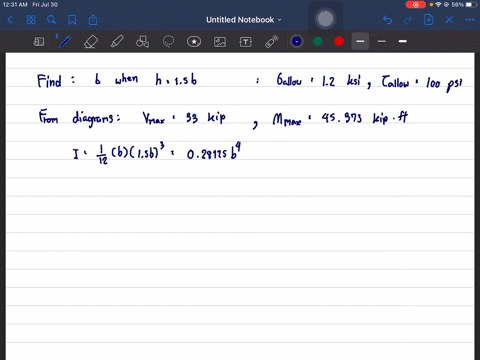 12:31 AM Fri Jul 30
56%
Untitled Notebook
Find : b when h = 1.5b ; σallow = 1.2 ksi , τallow = 100 psi
From diagrams: Vmax = 33 kip , Mmax = 45.375 kip·ft
I = 1/12 (b)(1.5b)³ = 0.28125 b⁴